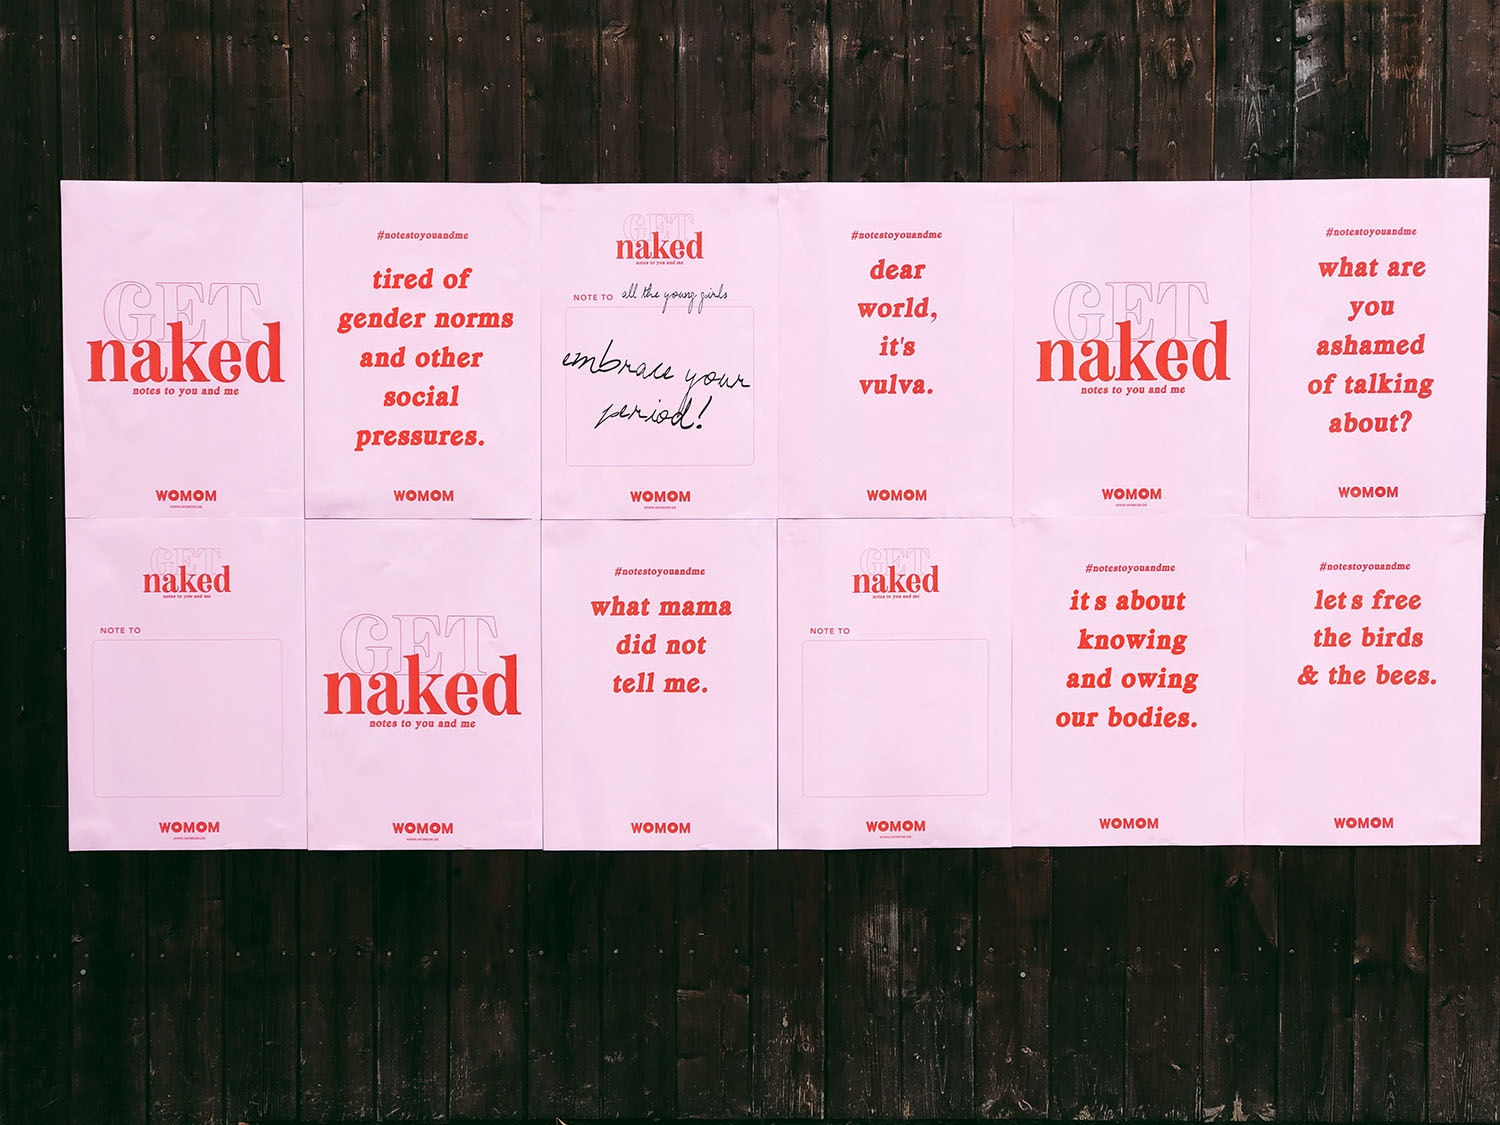 GET
naked
notes to you and me
WOMOM
WWW.WOMOM.DE
#notestoyouandme
tired of
gender norms
and other
social
pressures.
WOMOM
GET
naked
notes to you and me
NOTE TO all the young girls
embrace your
period!
WOMOM
WWW.WOMOM.DE
#notestoyouandme
dear
world,
it's
vulva.
WOMOM
GET
naked
notes to you and me
WOMOM
WWW.WOMOM.DE
#notestoyouandme
what are
you
ashamed
of talking
about?
WOMOM
GET
naked
notes to you and me
NOTE TO
WOMOM
WWW.WOMOM.DE
GET
naked
notes to you and me
WOMOM
WWW.WOMOM.DE
#notestoyouandme
what mama
did not
tell me.
WOMOM
GET
naked
notes to you and me
NOTE TO
WOMOM
WWW.WOMOM.DE
#notestoyouandme
it s about
knowing
and owing
our bodies.
WOMOM
#notestoyouandme
let s free
the birds
& the bees.
WOMOM